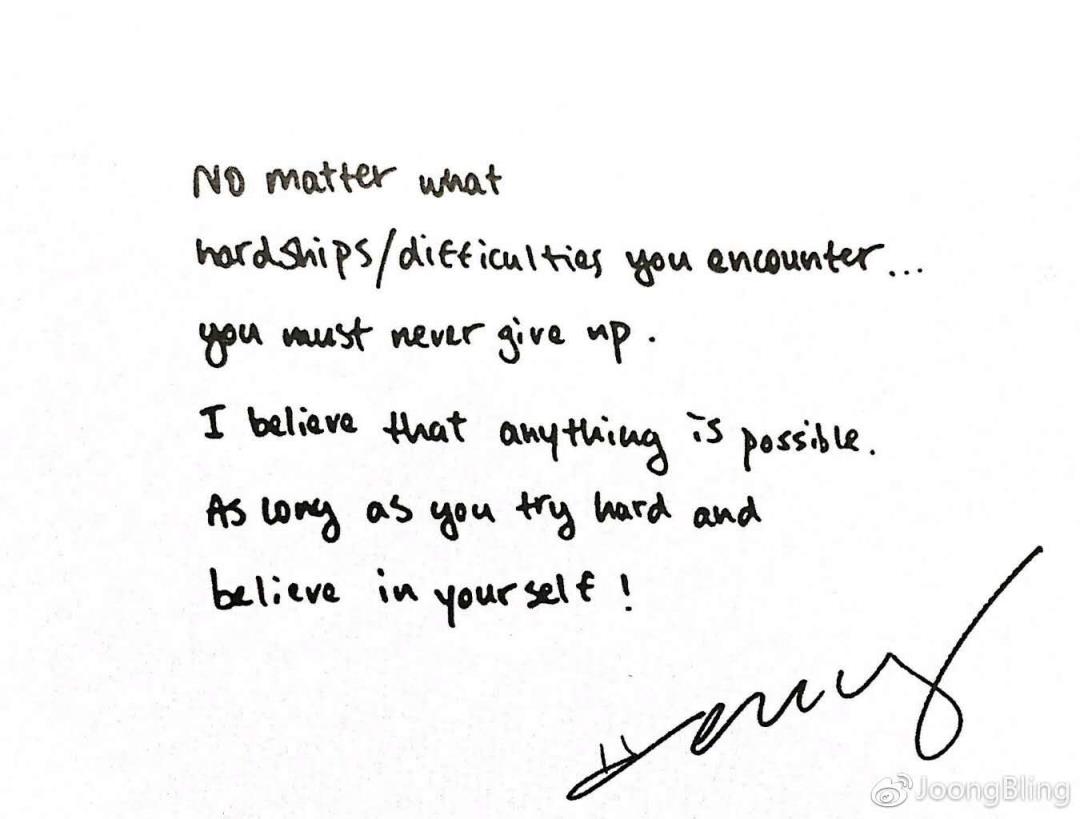 No matter what
hardships/difficulties you encounter...
you must never give up.
I believe that anything is possible.
As long as you try hard and
believe in yourself!
Henry
JoongBling